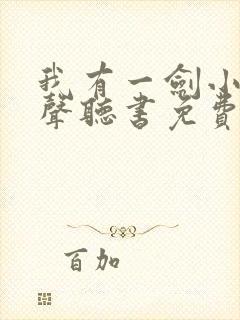 我有一劍小
聲聽書免費
百加